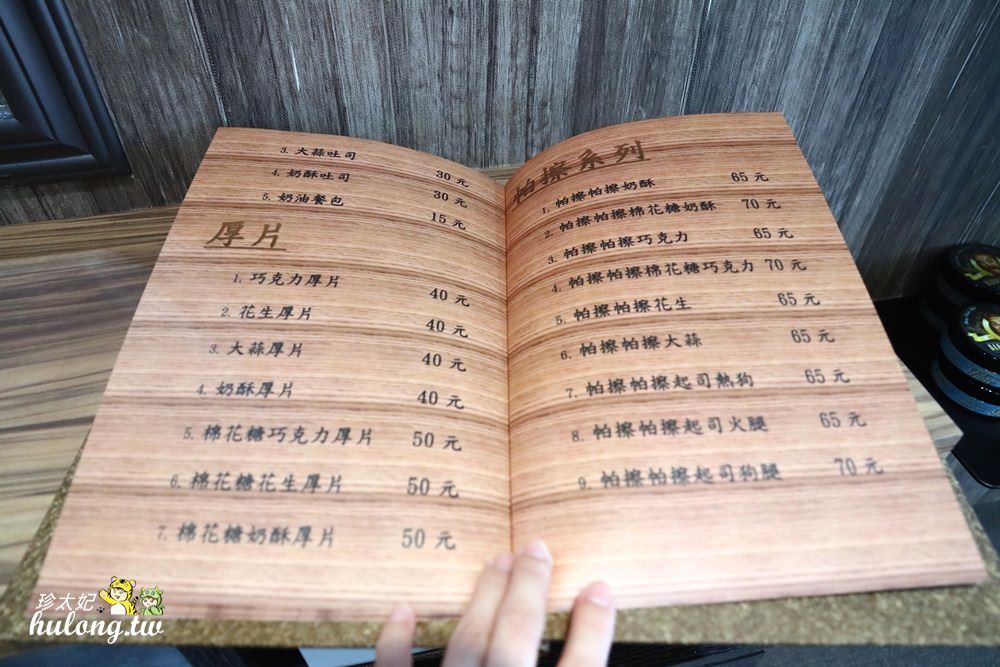 3. 大蒜吐司 30 元
4. 奶酥吐司 30 元
5. 奶油餐包 15 元
厚片
1. 巧克力厚片 40 元
2. 花生厚片 40 元
3. 大蒜厚片 40 元
4. 奶酥厚片 40 元
5. 棉花糖巧克力厚片 50 元
6. 棉花糖花生厚片 50 元
7. 棉花糖奶酥厚片 50 元
帕擦系列
1. 帕擦帕擦奶酥 65 元
2. 帕擦帕擦棉花糖奶酥 70 元
3. 帕擦帕擦巧克力 65 元
4. 帕擦帕擦棉花糖巧克力 70 元
5. 帕擦帕擦花生 65 元
6. 帕擦帕擦大蒜 65 元
7. 帕擦帕擦起司熱狗 65 元
8. 帕擦帕擦起司火腿 65 元
9. 帕擦帕擦起司狗腿 70 元
珍太妃
hulong.tw